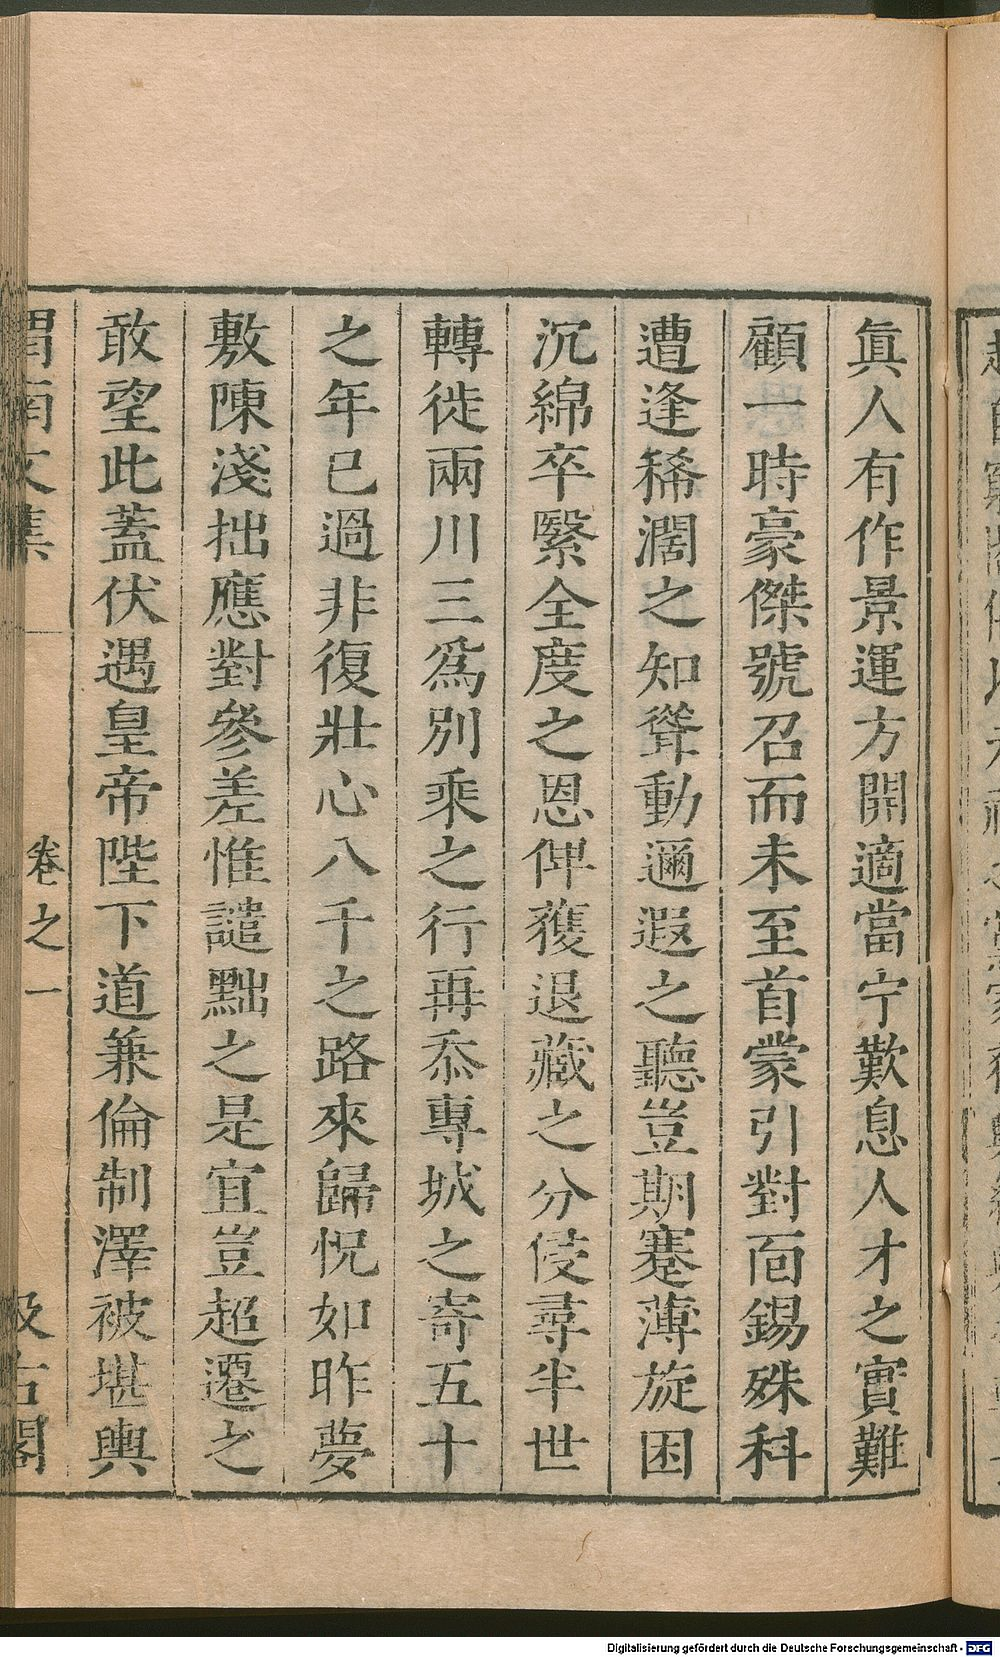 眞人有作景運方開適當宁歎息人才之實難
顧一時豪傑號召而未至首蒙引對面錫殊科
遭逢稀濶之知聳動邇遐之聽豈期蹇薄旋困
沉綿卒繄全度之恩俾獲退藏之分侵尋半世
轉徙兩川三爲別乘之行再忝專城之寄五十
之年已過非復壯心八千之路來歸怳如昨夢
敷陳淺拙應對參差惟譴黜之是宜豈超遷之
敢望此蓋伏遇皇帝陛下道兼倫制澤被堪輿
渭南文集 卷之一 汲古閣
Digitalisierung gefördert durch die Deutsche Forschungsgemeinschaft - DFG